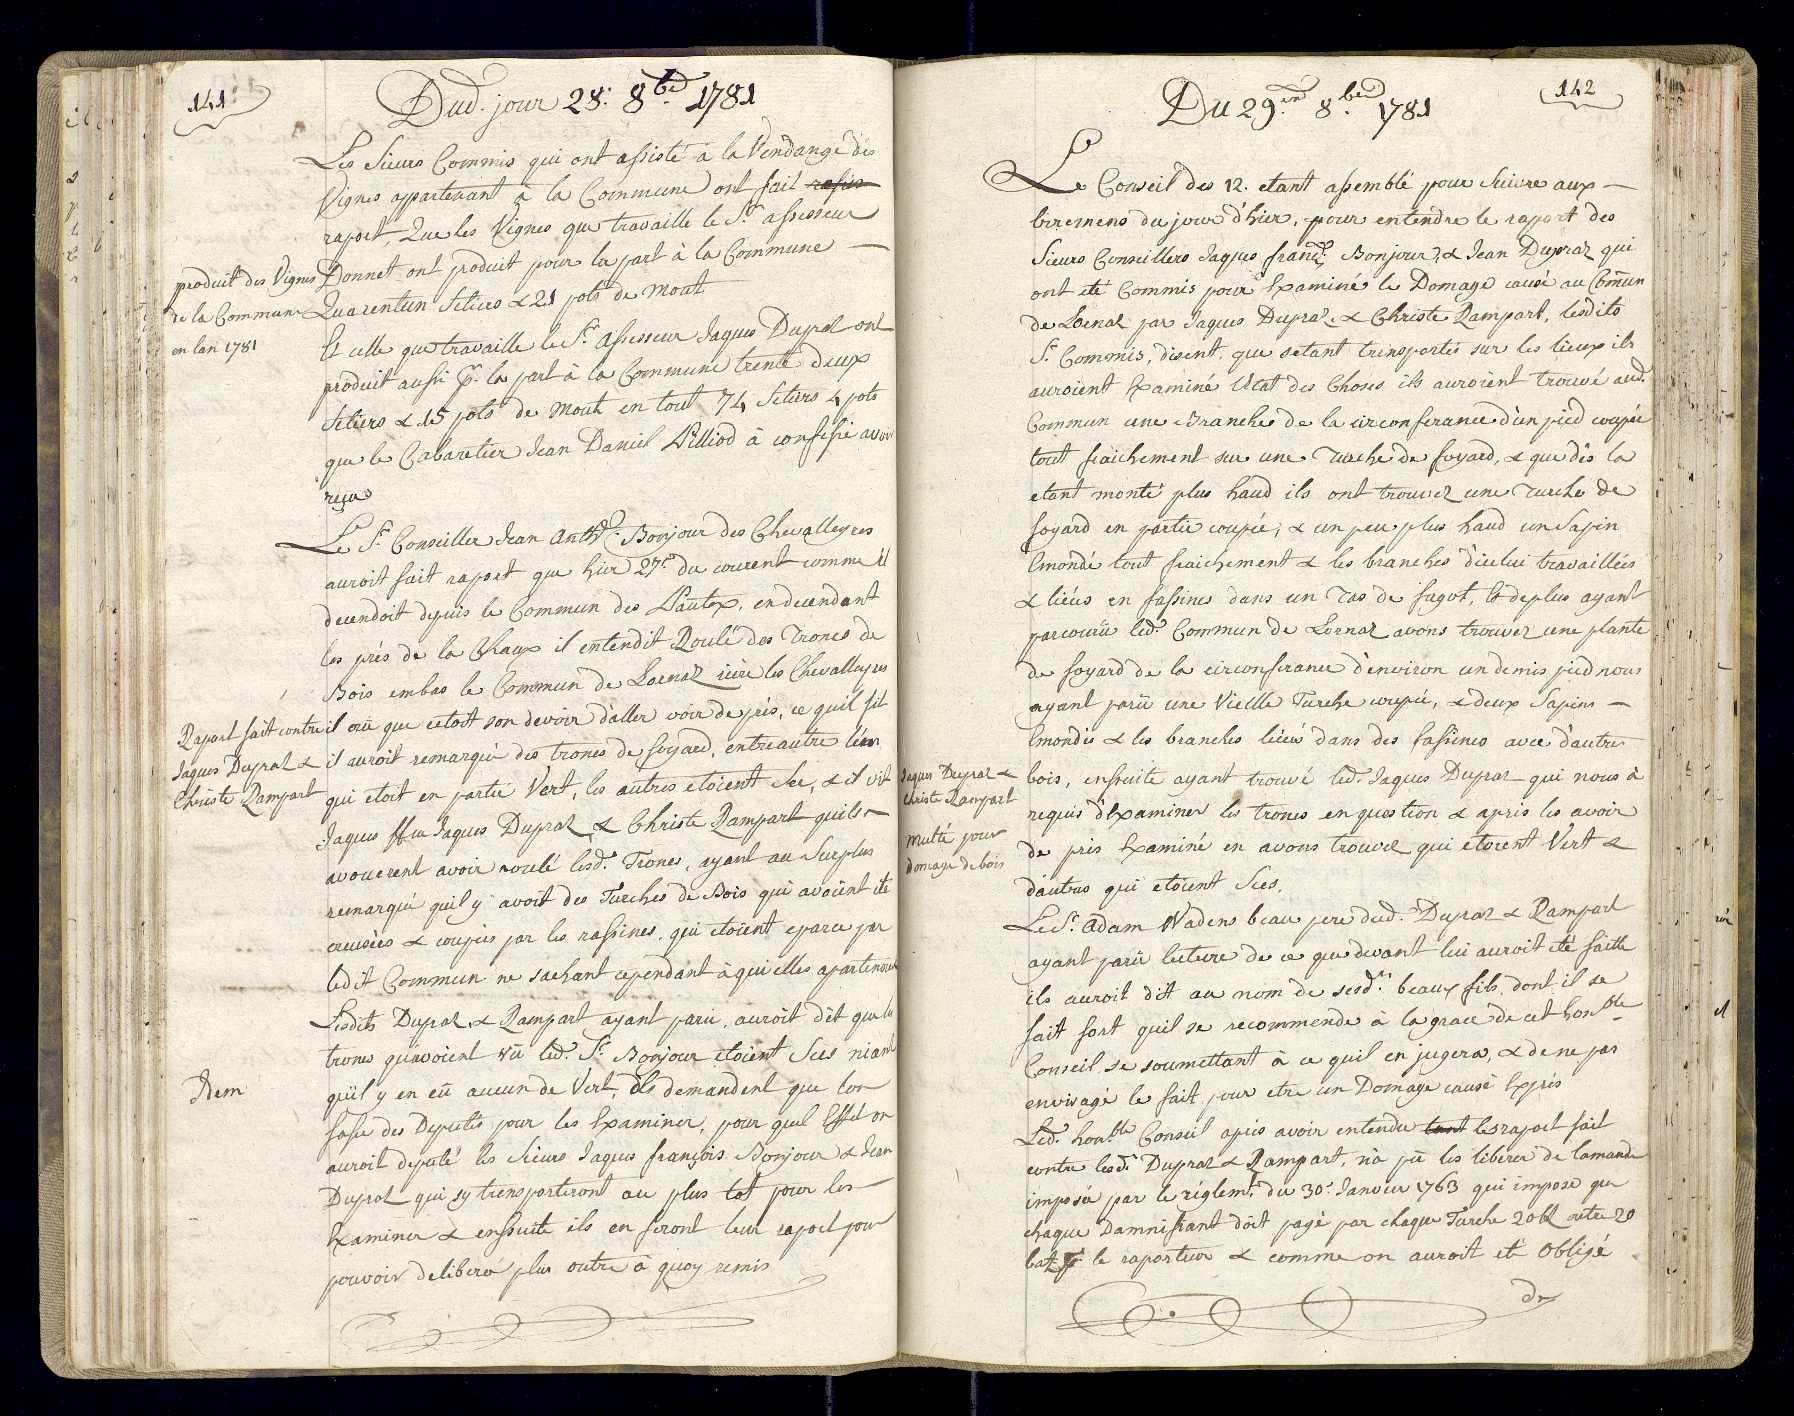 141
Dud. jour 28. 8bre 1781
Les Sieurs Commis qui ont assisté à la Vendange des
Vignes appartenant à la Commune ont fait
raport, Que les Vignes que travaille le Sr. assesseur
Donnet ont produit pour la part à la Commune —
Quarentun Setiers & 21 pots de Mout
produit des Vignes
de la Commune
en lan 1781
Et celle que travaille le Sr. Assesseur Jaques Dupraz ont
produit aussi pr. la part à la Commune trente deux
Setiers & 15 pots de Mout en tout 74 Setiers 4 pots
que le Cabaretier Jean Daniel Pilliod à confessé avoir
reçu
Le Sr. Conseiller Jean Anthe. Bonjour des Chevalleyres
auroit fait raport que hier 27e du courent comme il
decendoit depuis le Commun des Pautex, en decendant
les prés de la Chaux il entendit Roulé des Troncs de
Bois embas le Commun de Lornaz riere les Chevalleyres
il crû que cetoit son devoir d'aller voir de prés, ce quil fit
il auroit remarqué des troncs de foyard, entre autre l'un
qui etoit en partie Vert, les autres etoient Sec, & il vit
Jaques ffeu Jaques Dupraz & Christe Rampart quils
avouerent avoir roulé lesd. Troncs, ayant au Surplus
remarqué quil y avoit des Turches de Bois qui avoient été
creusées & coupées par les rassines, qui etoient eparce par
ledit Commun ne sachant cependant à qui elles apartenoient
Raport fait contre
Jaques Dupraz &
Christe Rampart
Lesdits Dupraz & Rampart ayant parû, auroit dit que les
troncs qu'avoient vû led. Sr. Bonjour etoient Secs niant
quil y en eû aucun de Vert, ils demandent que lon
fasse des Deputés pour les Examiner, pour quel Effet on
auroit deputé les Sieurs Jaques françois Bonjour & Jean
Dupraz qui sy transporteront au plus tot pour les
Examiner & ensuite ils en feront leur raport pour
pouvoir deliberé plus outre à quoy remis
Idem
142
Du 29em 8bre 1781
Le Conseil des 12. etant assemblé pour Suivre aux —
biremens du jour d'hier, pour entendre le raport des
Sieurs Conseillers Jaques franç. Bonjour, & Jean Dupraz qui
ont eté Commis pour Examiné le Domage causé au Comun
de Lornaz par Jaques Dupraz & Christe Rampart, lesdits
Sr. Commis, disent, que setant trensportés sur les lieux ils
auroient Examiné l'Etat des Choses ils auroient trouvé aud.
Commun une Branche de la circonferance d'un pied coupée
tout fraichement sur une Turche de foyard, & que dès la
etant monté plus haud ils ont trouvez une Turche de
foyard en partie coupée, & un peu plus haud un Sapin
Emondé tout fraichement & les branches d'icelui travaillées
& liées en fassines dans un Tas de fagot, Et deplus ayant
parcourû led. Commun de Lornaz avons trouvez une plante
de foyard de la circonferance d'environ un demis pied nous
ayant parû une Vieille Turche coupée, & deux Sapins —
Emondés & les branches liées dans des fassines avec d'autres
bois, ensuite ayant trouvé led. Jaques Dupraz qui nous à
requis d'Examiner les troncs en question & après les avoir
de prés Examiné en avons trouvez qui etoient Vert &
d'autres qui etoient Secs.
Jaques Dupraz &
Christe Rampart
multé pour
domage de bois
Le Sr. Adam Wadens beau pere dud. Dupraz & Rampart
ayant parû lecture de ce que devant lui auroit eté faitte
ils auroit dit au nom de sesd. beaux fils, dont il se
fait fort quil se recommende à la grace de cet honble.
Conseil, se soumettant à ce quil en jugera, & de ne pas
envisagé le fait pour etre un Domage causé Exprés
Led. honble. Conseil après avoir entendu tant les raport fait
contre lesd. Dupraz & Rampart, n'a pû les liberer de lamande
imposée par le réglemt. du 30e. Janvier 1763 qui impose que
chaque Damnifiant doit payé par chaque Turche 20 bz outre 20
batz pr. le raporteur & comme on auroit eté Obligé
de